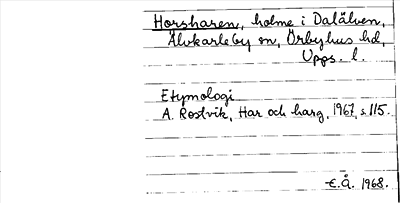 Horsharen, holme i Dalälven,
Älvkarleby sn, Örbyhus hd,
Upps. l.
Etymologi
A. Rostvik, Har och harg, 1967, s. 115.
E.Å. 1968.